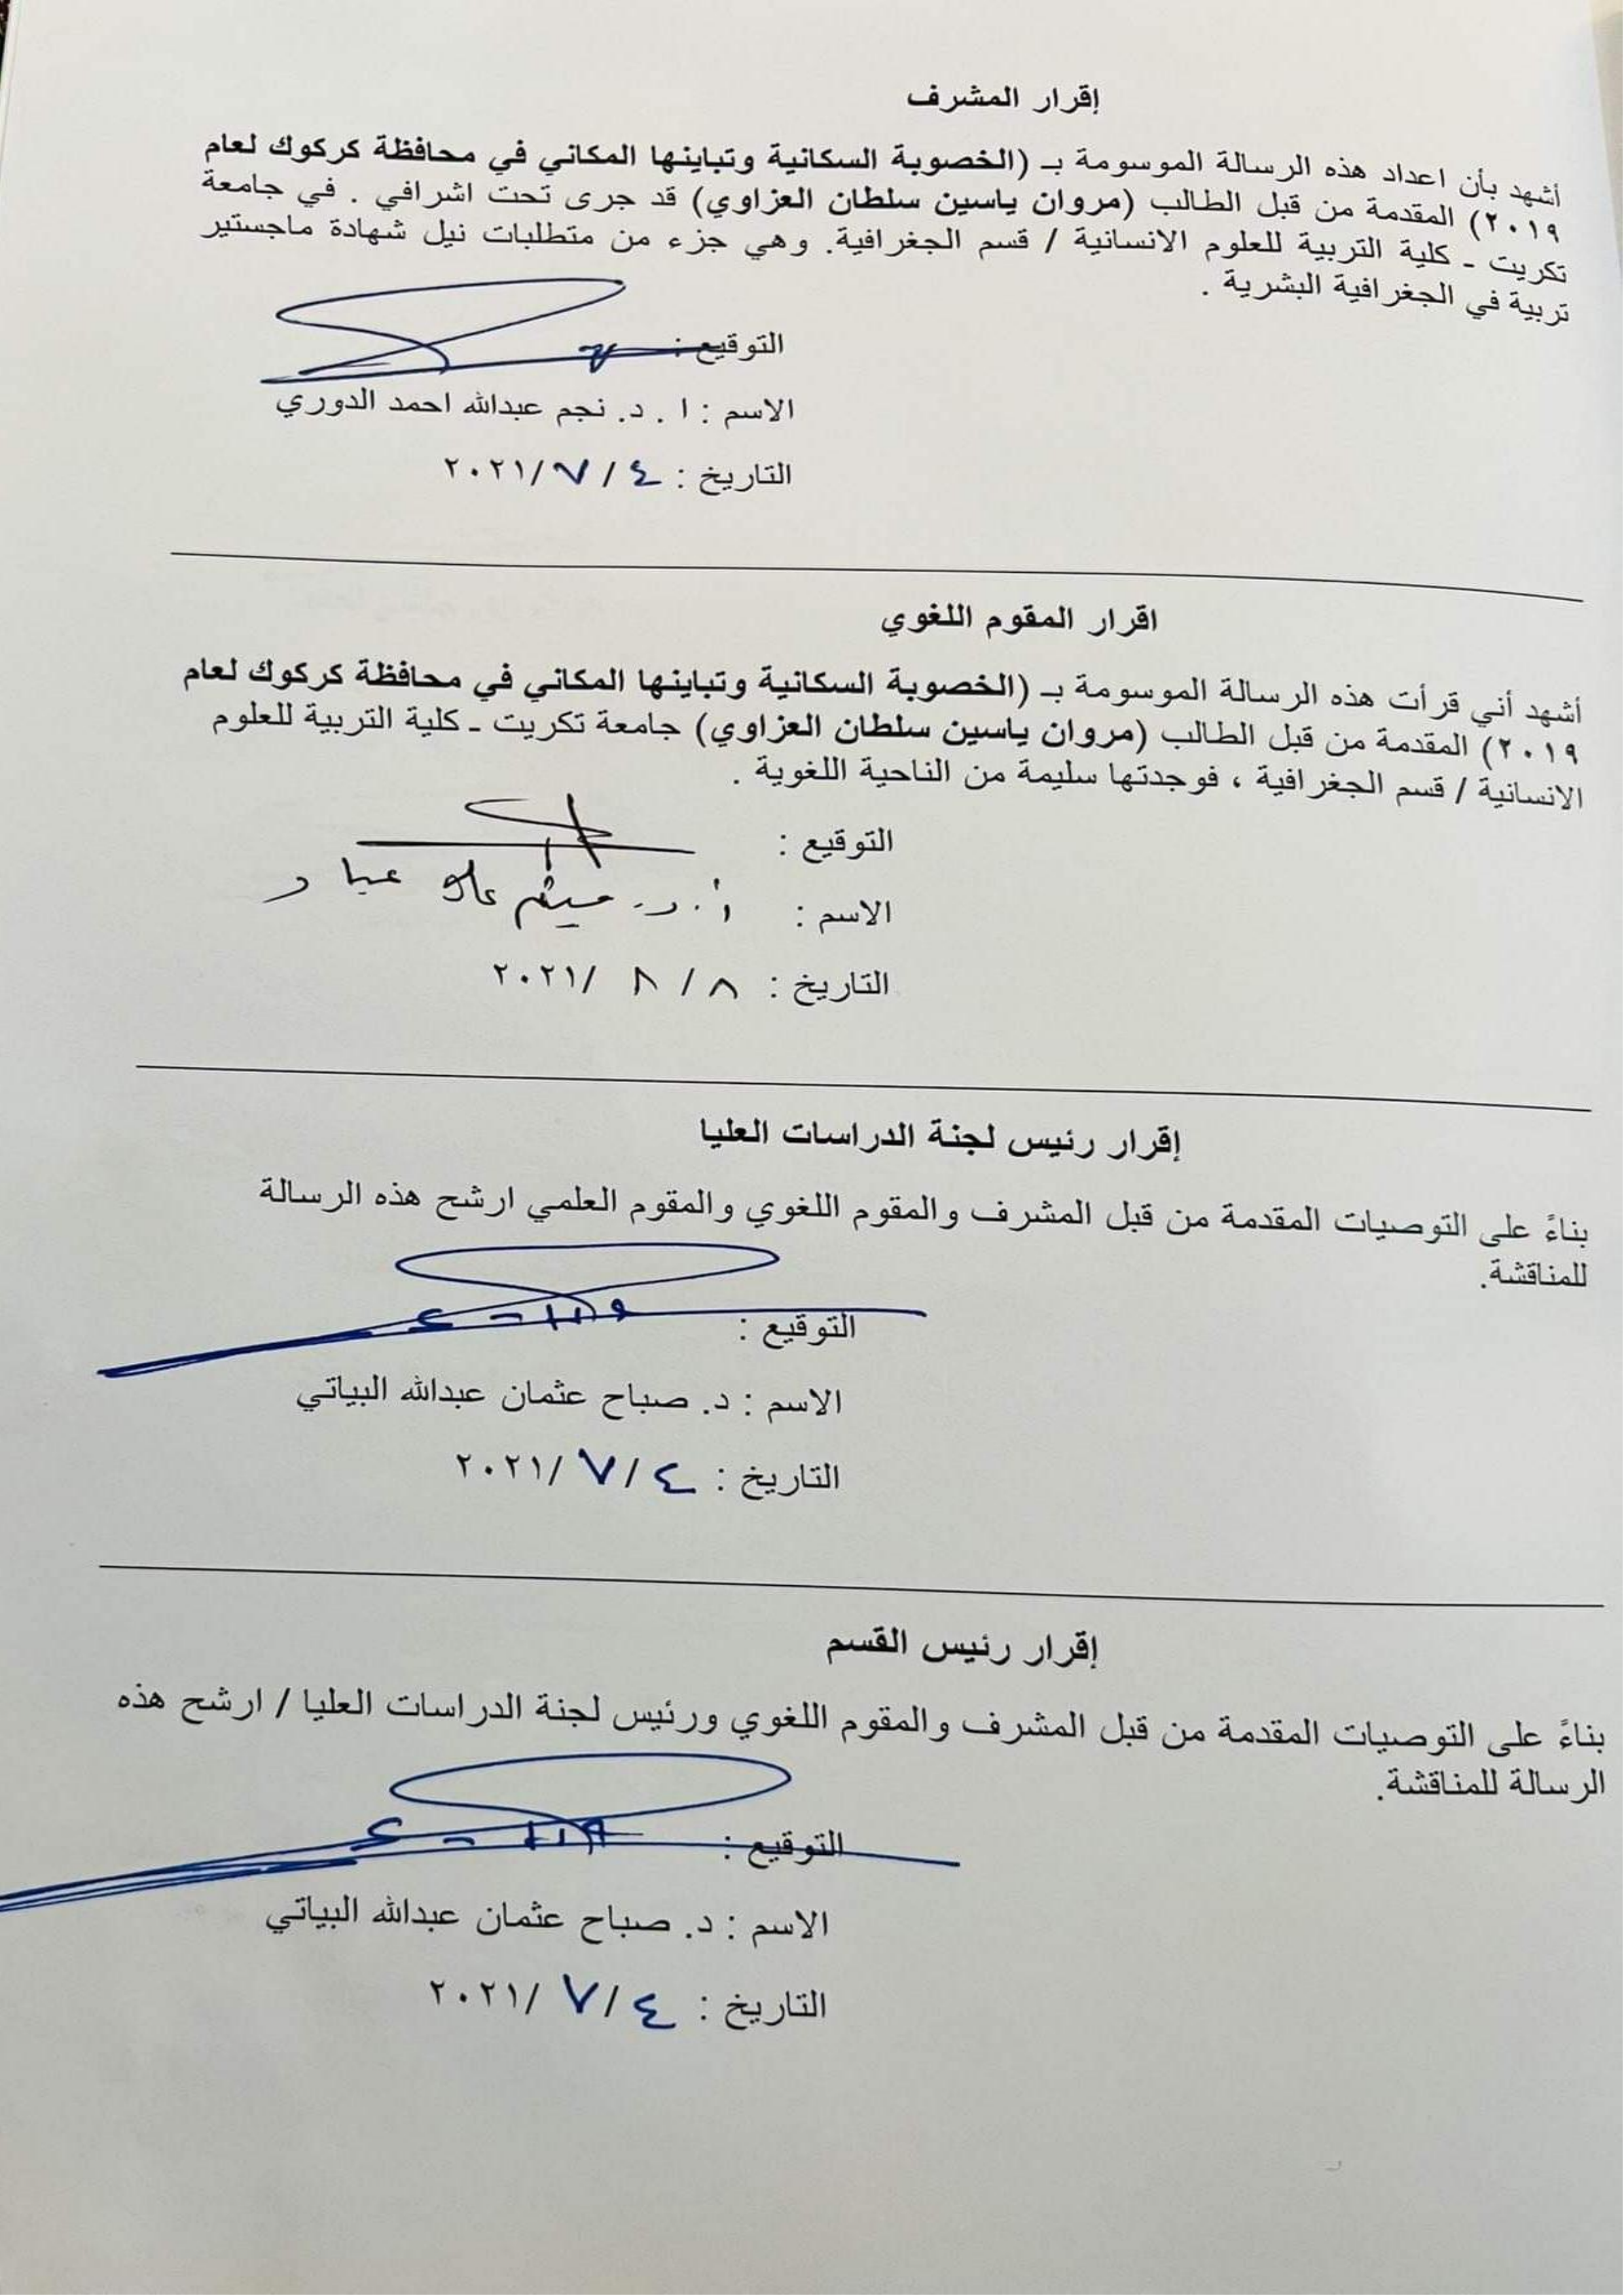 إقرار المشرف
أشهد بأن اعداد هذه الرسالة الموسومة بـ (الخصوبة السكانية وتباينها المكاني في محافظة كركوك لعام
٢٠١٩) المقدمة من قبل الطالب (مروان ياسين سلطان العزاوي) قد جرى تحت اشرافي . في جامعة
تكريت ـ كلية التربية للعلوم الانسانية / قسم الجغرافية. وهي جزء من متطلبات نيل شهادة ماجستير
تربية في الجغرافية البشرية .
التوقيع :
الاسم : ا . د. نجم عبدالله احمد الدوري
التاريخ : ٤ / ٧ /٢٠٢١
اقرار المقوم اللغوي
أشهد أني قرأت هذه الرسالة الموسومة بـ (الخصوبة السكانية وتباينها المكاني في محافظة كركوك لعام
٢٠١٩) المقدمة من قبل الطالب (مروان ياسين سلطان العزاوي) جامعة تكريت ـ كلية التربية للعلوم
الانسانية / قسم الجغرافية ، فوجدتها سليمة من الناحية اللغوية .
التوقيع :
الاسم : أ. د. ميثم
التاريخ : ٨ / ٨ /٢٠٢١
إقرار رئيس لجنة الدراسات العليا
بناءً على التوصيات المقدمة من قبل المشرف والمقوم اللغوي والمقوم العلمي ارشح هذه الرسالة
للمناقشة.
التوقيع :
الاسم : د. صباح عثمان عبدالله البياتي
التاريخ : ٤ / ٧ /٢٠٢١
إقرار رئيس القسم
بناءً على التوصيات المقدمة من قبل المشرف والمقوم اللغوي ورئيس لجنة الدراسات العليا / ارشح هذه
الرسالة للمناقشة.
التوقيع :
الاسم : د. صباح عثمان عبدالله البياتي
التاريخ : ٤ / ٧ /٢٠٢١